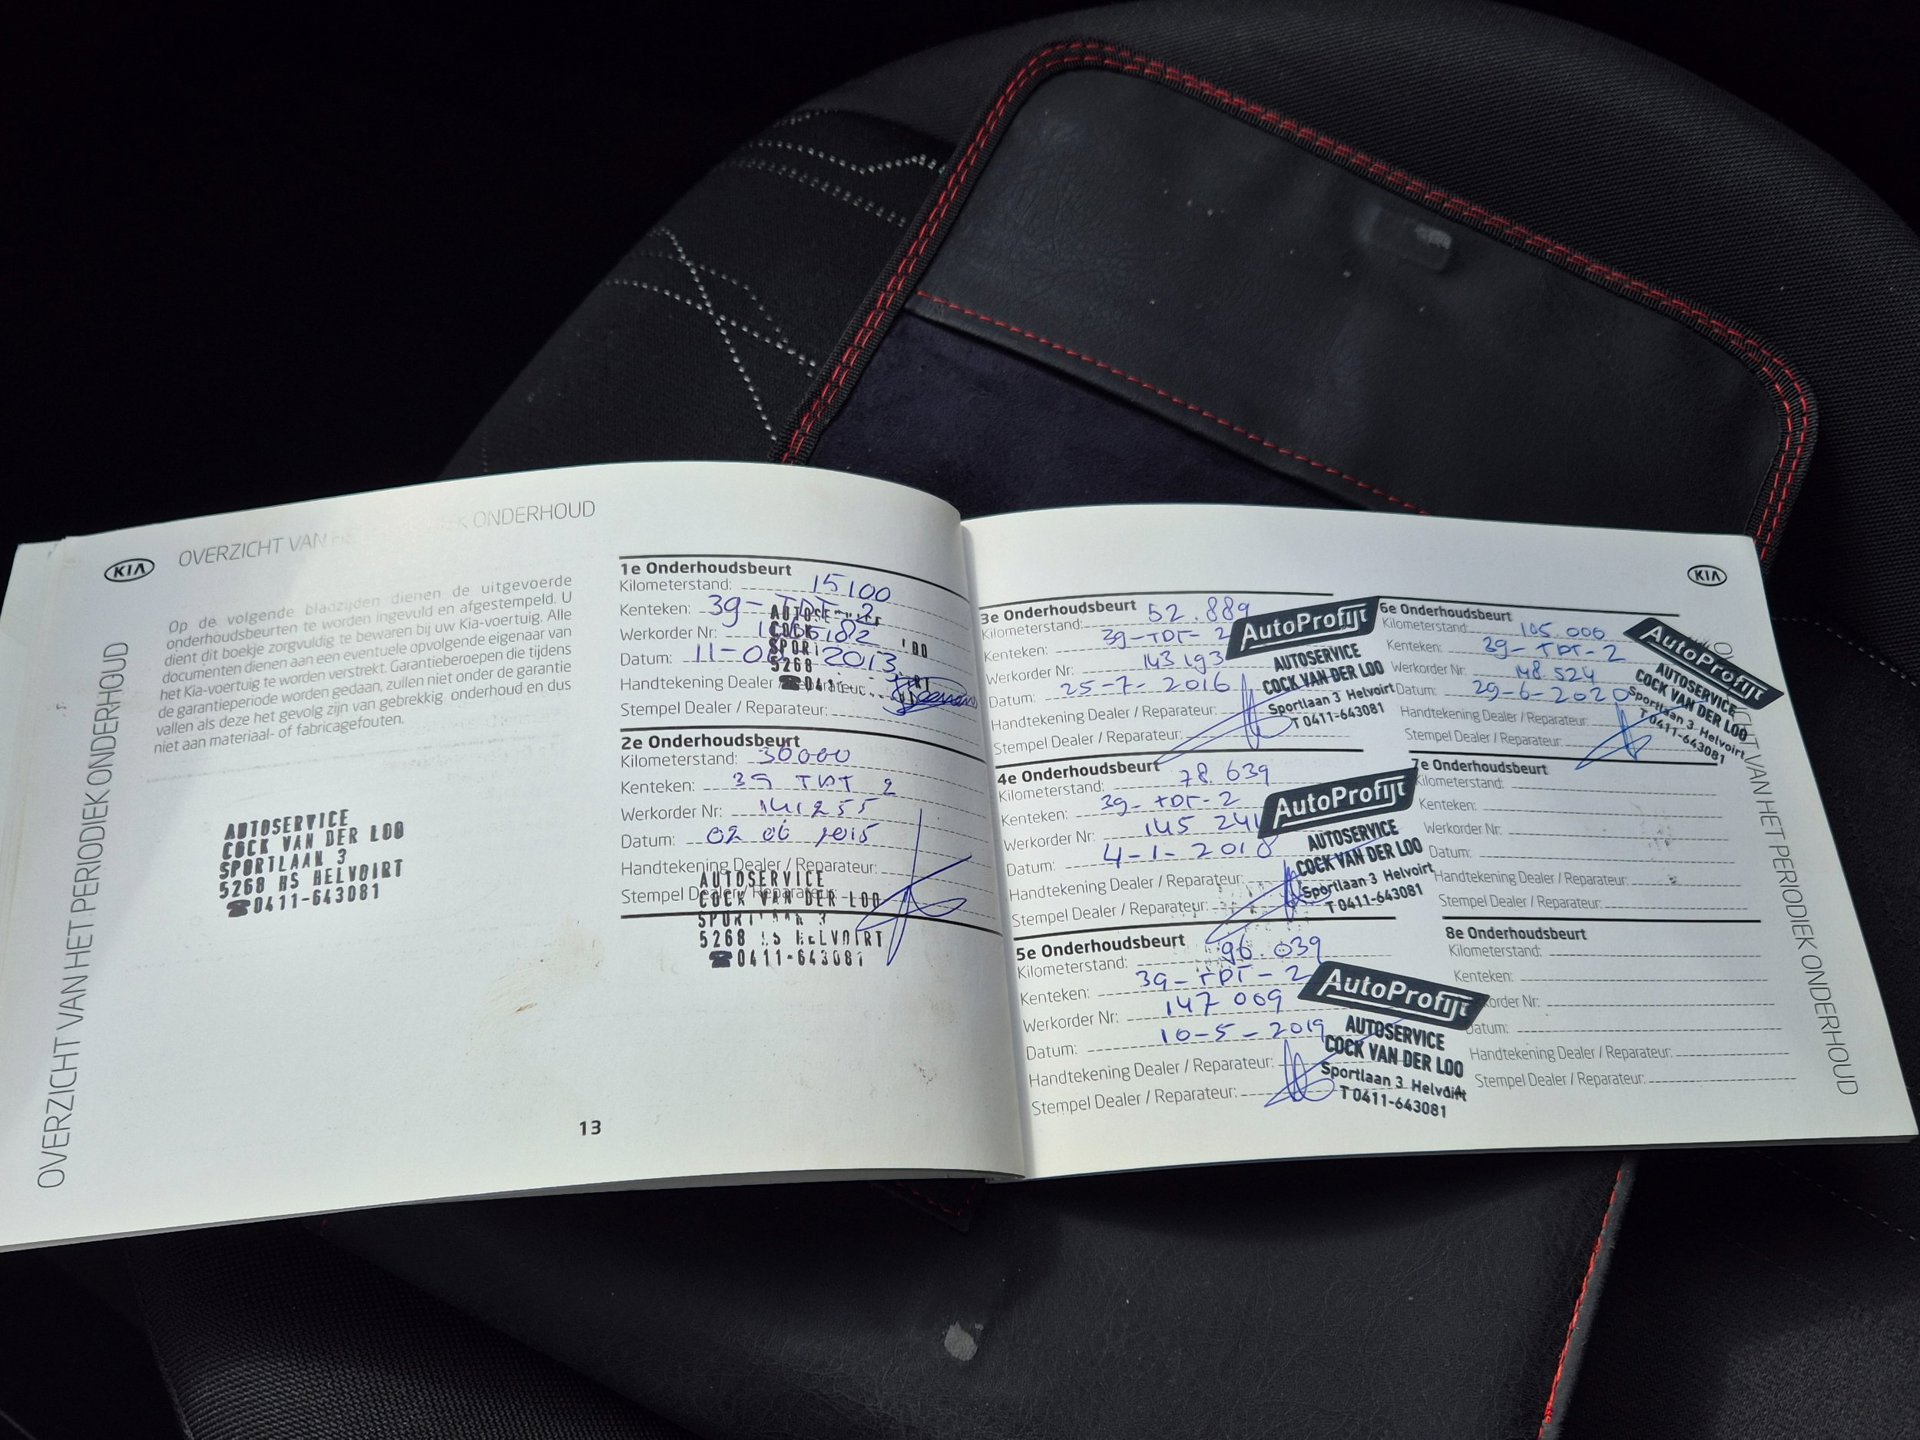 KIA
OVERZICHT VAN HET PERIODIEK ONDERHOUD
Op de volgende bladzijden dienen de uitgevoerde
onderhoudsbeurten te worden ingevuld en afgestempeld. U
dient dit boekje zorgvuldig te bewaren bij uw Kia-voertuig. Alle
documenten dienen aan een eventuele opvolgende eigenaar van
het Kia-voertuig te worden verstrekt. Garantieberoepen die tijdens
de garantieperiode worden gedaan, zullen niet onder de garantie
vallen als deze het gevolg zijn van gebrekkig onderhoud en dus
niet aan materiaal- of fabricagefouten.
AUTOSERVICE
COCK VAN DER LOO
SPORTLAAN 3
5268 HS HELVOIRT
☎0411-643081
OVERZICHT VAN HET PERIODIEK ONDERHOUD
13
1e Onderhoudsbeurt
Kilometerstand: 15100
Kenteken: 39-TDT-2
Werkorder Nr:
Datum: 2013
Handtekening Dealer / Reparateur:
Stempel Dealer / Reparateur:
2e Onderhoudsbeurt
Kilometerstand: 30000
Kenteken: 39 TDT 2
Werkorder Nr: 141255
Datum: 02 06 2015
Handtekening Dealer / Reparateur:
Stempel Dealer / Reparateur:
AUTOSERVICE
COCK VAN DER LOO
SPORTLAAN 3
5268 HS HELVOIRT
☎0411-643081
3e Onderhoudsbeurt
Kilometerstand: 52.889
Kenteken: 39-TDT-2
Werkorder Nr: 143193
Datum: 25-7-2016
Handtekening Dealer / Reparateur:
Stempel Dealer / Reparateur:
AutoProfijt
AUTOSERVICE
COCK VAN DER LOO
Sportlaan 3 Helvoirt
T 0411-643081
4e Onderhoudsbeurt
Kilometerstand: 78.639
Kenteken: 39-TDT-2
Werkorder Nr: 145 241
Datum: 4-1-2018
Handtekening Dealer / Reparateur:
Stempel Dealer / Reparateur:
AutoProfijt
AUTOSERVICE
COCK VAN DER LOO
Sportlaan 3 Helvoirt
T 0411-643081
5e Onderhoudsbeurt
Kilometerstand: 96.039
Kenteken: 39-TDT-2
Werkorder Nr: 147 009
Datum: 10-5-2019
Handtekening Dealer / Reparateur:
Stempel Dealer / Reparateur:
AutoProfijt
AUTOSERVICE
COCK VAN DER LOO
Sportlaan 3 Helvoirt
T 0411-643081
KIA
6e Onderhoudsbeurt
Kilometerstand: 105.006
Kenteken: 39-TDT-2
Werkorder Nr: 148.524
Datum: 29-6-2020
Handtekening Dealer / Reparateur:
Stempel Dealer / Reparateur:
AutoProfijt
AUTOSERVICE
COCK VAN DER LOO
Sportlaan 3 Helvoirt
T 0411-643081
7e Onderhoudsbeurt
Kilometerstand:
Kenteken:
Werkorder Nr:
Datum:
Handtekening Dealer / Reparateur:
Stempel Dealer / Reparateur:
8e Onderhoudsbeurt
Kilometerstand:
Kenteken:
Werkorder Nr:
Datum:
Handtekening Dealer / Reparateur:
Stempel Dealer / Reparateur:
OVERZICHT VAN HET PERIODIEK ONDERHOUD